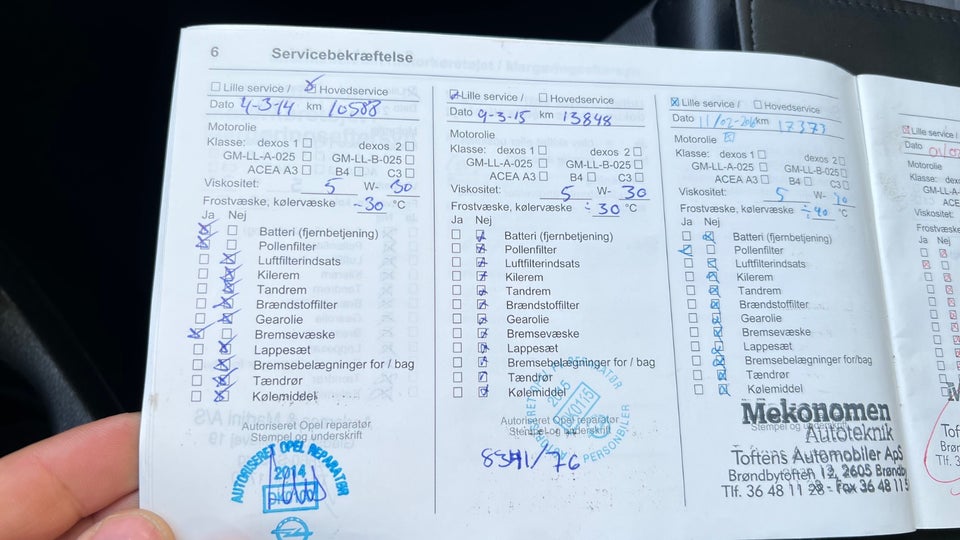 6 Servicebekræftelse
Lille service / Hovedservice
Dato 4-3-14 km 10588
Motorolie
Klasse: dexos 1 dexos 2
GM-LL-A-025 GM-LL-B-025
ACEA A3 B4 C3
Viskositet: 5 W- 30
Frostvæske, kølervæske -30 °C
Ja Nej
Batteri (fjernbetjening)
Pollenfilter
Luftfilterindsats
Kilerem
Tandrem
Brændstoffilter
Gearolie
Bremsevæske
Lappesæt
Bremsebelægninger for / bag
Tændrør
Kølemiddel
Autoriseret Opel reparatør
Stempel og underskrift
AUTORISERET OPEL REPARATØR
2014
Lille service / Hovedservice
Dato 9-3-15 km 13848
Motorolie
Klasse: dexos 1 dexos 2
GM-LL-A-025 GM-LL-B-025
ACEA A3 B4 C3
Viskositet: 5 W- 30
Frostvæske, kølervæske ÷30 °C
Ja Nej
Batteri (fjernbetjening)
Pollenfilter
Luftfilterindsats
Kilerem
Tandrem
Brændstoffilter
Gearolie
Bremsevæske
Lappesæt
Bremsebelægninger for / bag
Tændrør
Kølemiddel
Autoriseret Opel reparatør
Stempel og underskrift
AUTORISERET OPEL REPARATØR
2015
DK0115
PERSONBILER
Lille service / Hovedservice
Dato 11/02-2016 km
Motorolie
Klasse: dexos 1 dexos 2
GM-LL-A-025 GM-LL-B-025
ACEA A3 B4 C3
Viskositet: 5 W-
Frostvæske, kølervæske ÷40 °C
Ja Nej
Batteri (fjernbetjening)
Pollenfilter
Luftfilterindsats
Kilerem
Tandrem
Brændstoffilter
Gearolie
Bremsevæske
Lappesæt
Bremsebelægninger for/bag
Tændrør
Kølemiddel
Mekonomen
Autoteknik
Toftens Automobiler ApS
Brøndbytoften 12, 2605 Brøndb
Tlf. 36 48 11 28 - Fax 36 48 11
Lille service /
Dato
Motorolie
Klasse: de
GM-LL-A
ACEA
Viskositet:
Frostvæske
Ja Nej